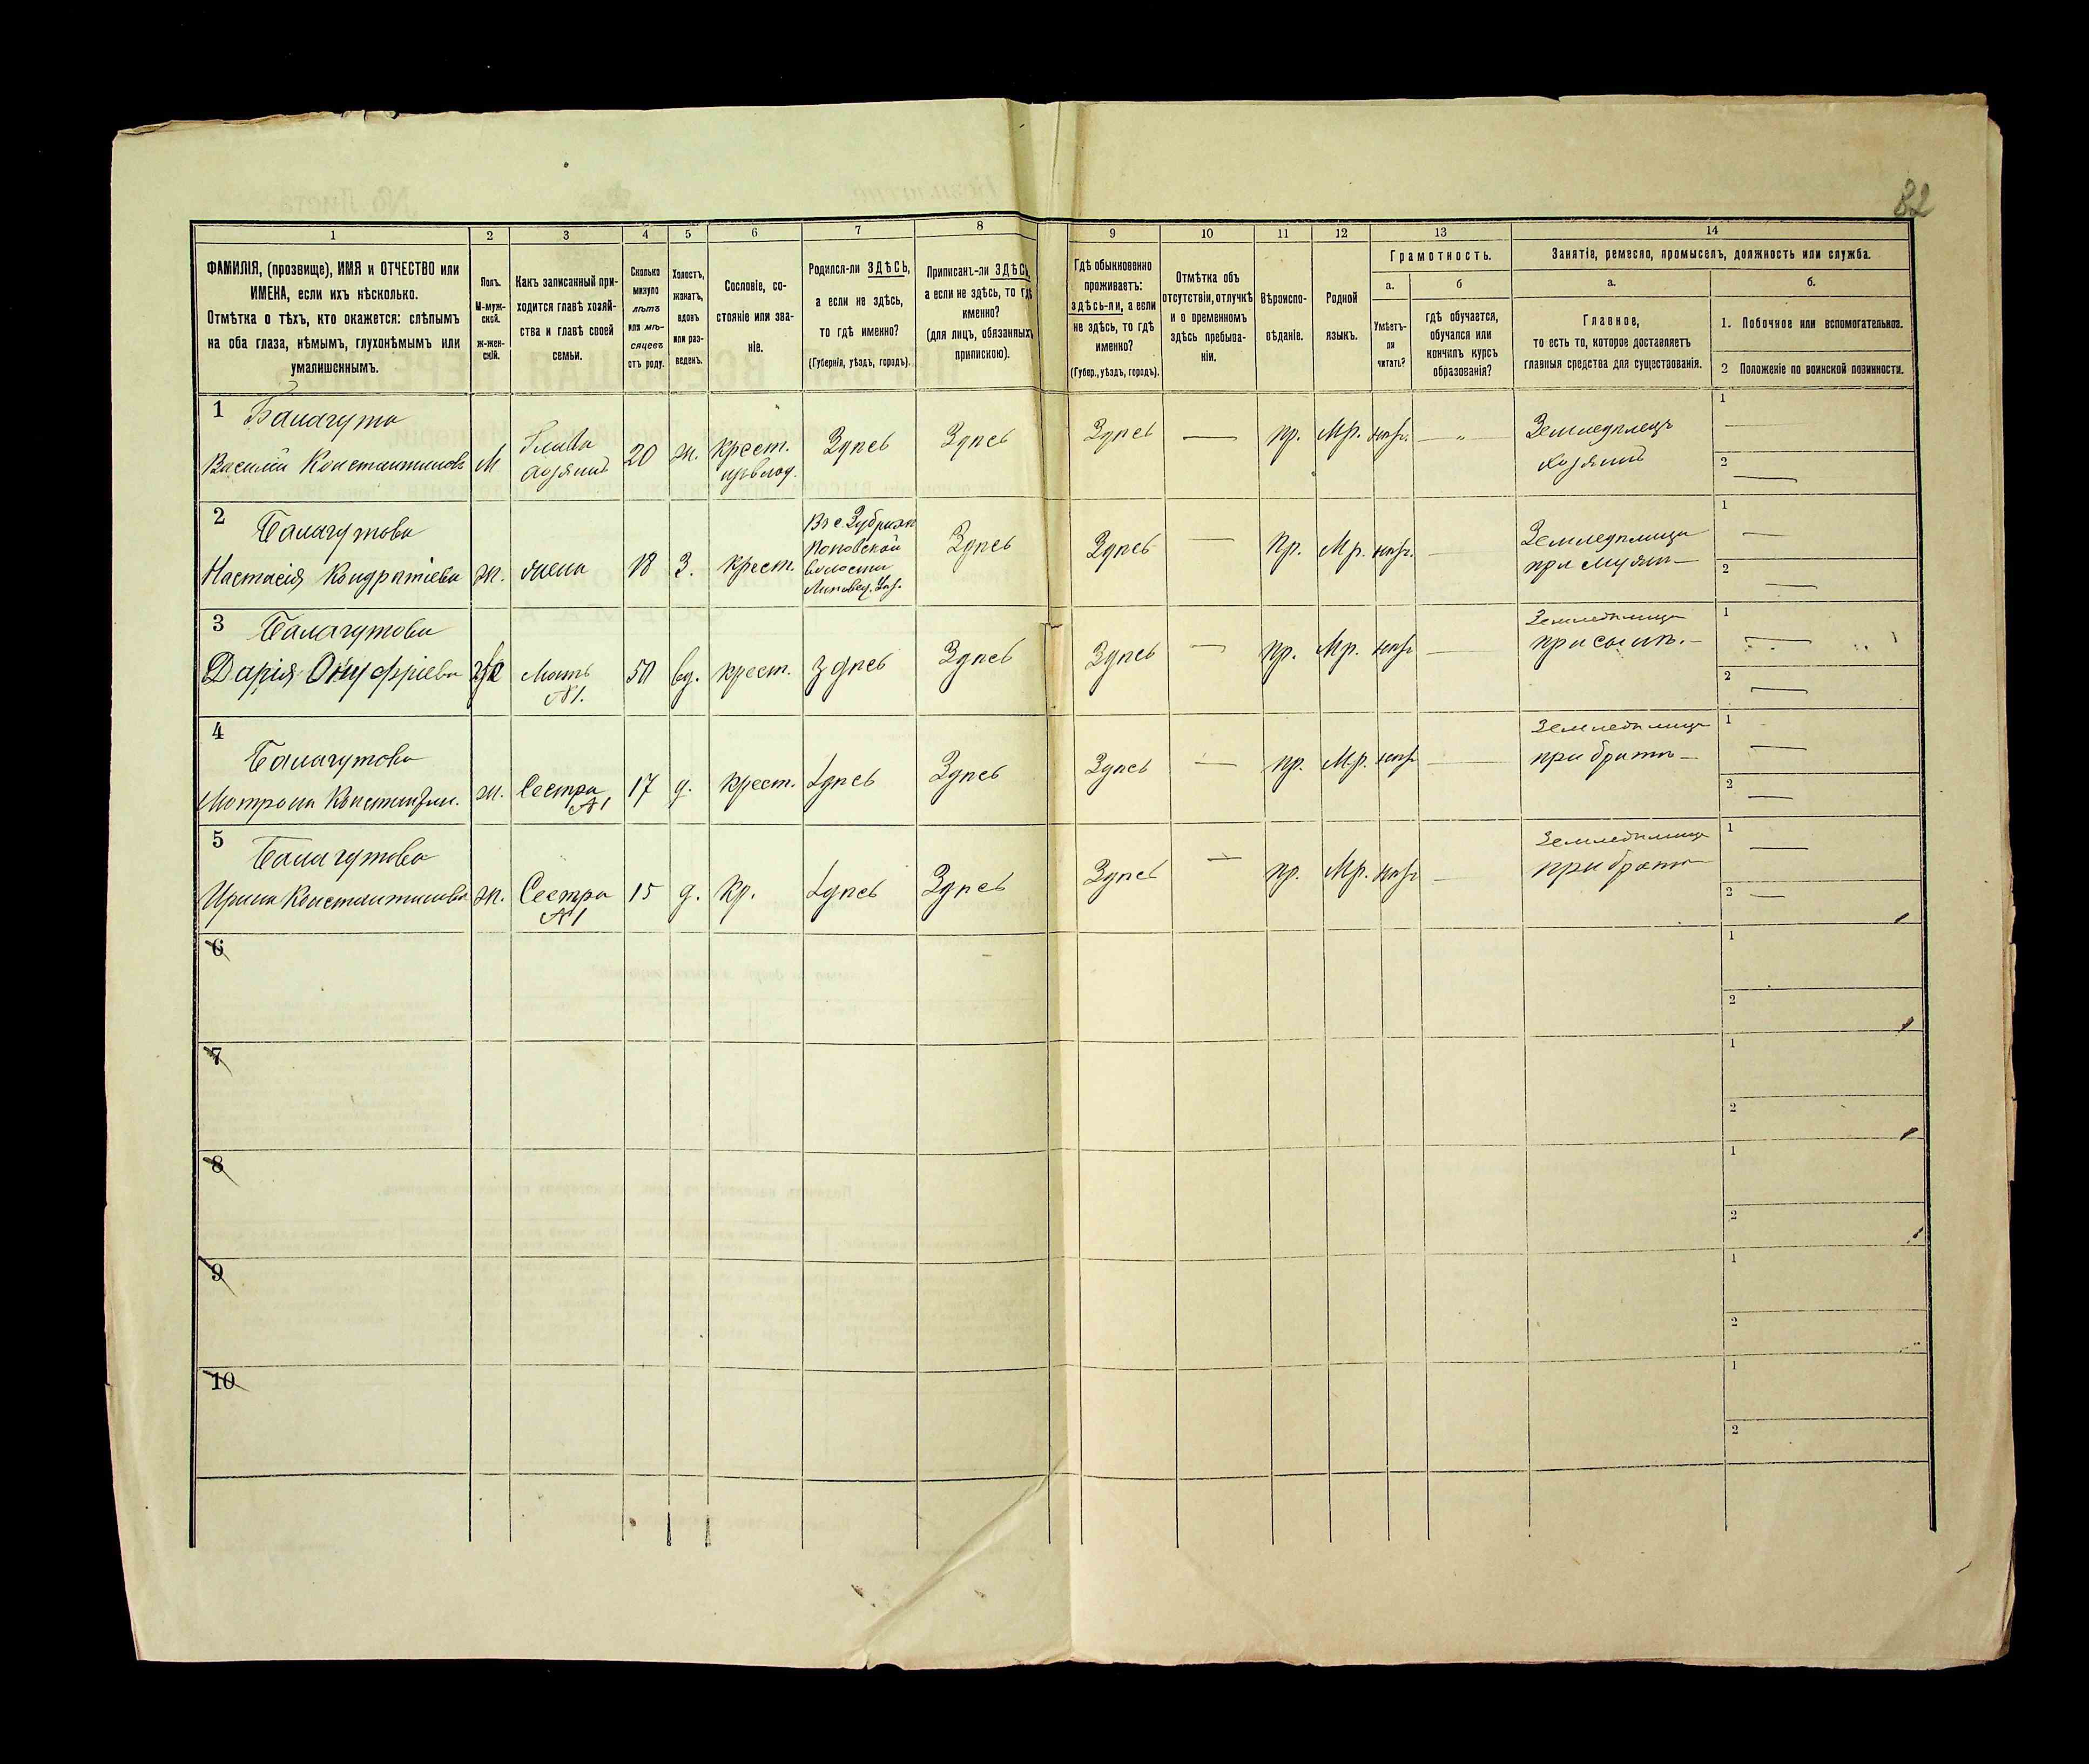 82
1 2 3 4 5 6 7 8 9 10 11 12 13 14
ФАМИЛІЯ, (прозвище), ИМЯ и ОТЧЕСТВО или
ИМЕНА, если ихъ нѣсколько.
Отмѣтка о тѣхъ, кто окажется: слѣпымъ
на оба глаза, нѣмымъ, глухонѣмымъ или
умалишеннымъ.
Полъ.
М-муж-
ской.
Ж-жен-
скій.
Какъ записанный при-
ходится главѣ хозяй-
ства и главѣ своей
семьи.
Сколько
минуло
лѣтъ
или мѣ-
сяцевъ
отъ роду.
Холостъ,
женатъ,
вдовъ
или раз-
веденъ.
Сословіе, со-
стояніе или зва-
ніе.
Родился-ли ЗДѢСЬ,
а если не здѣсь,
то гдѣ именно?
(Губернія, уѣздъ, городъ).
Приписанъ-ли ЗДѢСЬ,
а если не здѣсь, то гдѣ
именно?
(для лицъ, обязанныхъ
припискою).
Гдѣ обыкновенно
проживаетъ:
здѣсь-ли, а если
не здѣсь, то гдѣ
именно?
(Губер., уѣздъ, городъ).
Отмѣтка объ
отсутствіи, отлучкѣ
и о временномъ
здѣсь пребыва-
ніи.
Вѣроиспо-
вѣданіе.
Родной
языкъ.
Грамотность.
а.
Умѣетъ-
ли
читать?
б
гдѣ обучается,
обучался или
кончилъ курсъ
образованія?
Занятіе, ремесло, промыселъ, должность или служба.
а.
Главное,
то есть то, которое доставляетъ
главныя средства для существованія.
б.
1. Побочное или вспомогательное.
2 Положеніе по воинской повинности.
1 Балагута
Василій Константиновъ М Глава хозяинъ 20 ж. крест. Здѣсь Здѣсь Здѣсь — пр. Мр. — „ — Земледѣлецъ хозяинъ 1 — 2 —
2 Балагутова
Настасія Кондратіева ж. жена 18 З. крест. Въ с. Зубрихѣ
волости
Липовец. Уѣз.
Здѣсь Здѣсь — Пр. Мр. — Земледѣлица при мужѣ — 1 — 2 —
3 Балагутова
Дарія Онуфріева Мать №1. вд. крест. здѣсь Здѣсь Здѣсь — пр. Мр. — Земледѣлица при сынѣ. — 1 — 2 —
4 Балагутова
Мотрона Константин. ж. Сестра №1 17 д. крест. Здѣсь Здѣсь Здѣсь — пр. Мр. — Земледѣлица при братѣ — 1 — 2 —
5 Балагутова
Ирина Константинова ж. Сестра №1 15 д. Кр. Здѣсь Здѣсь Здѣсь — пр. Мр. — Земледѣлица при братѣ 1 — 2 —
6 1 2
7 1 2
8 1 2
9 1 2
10 1 2